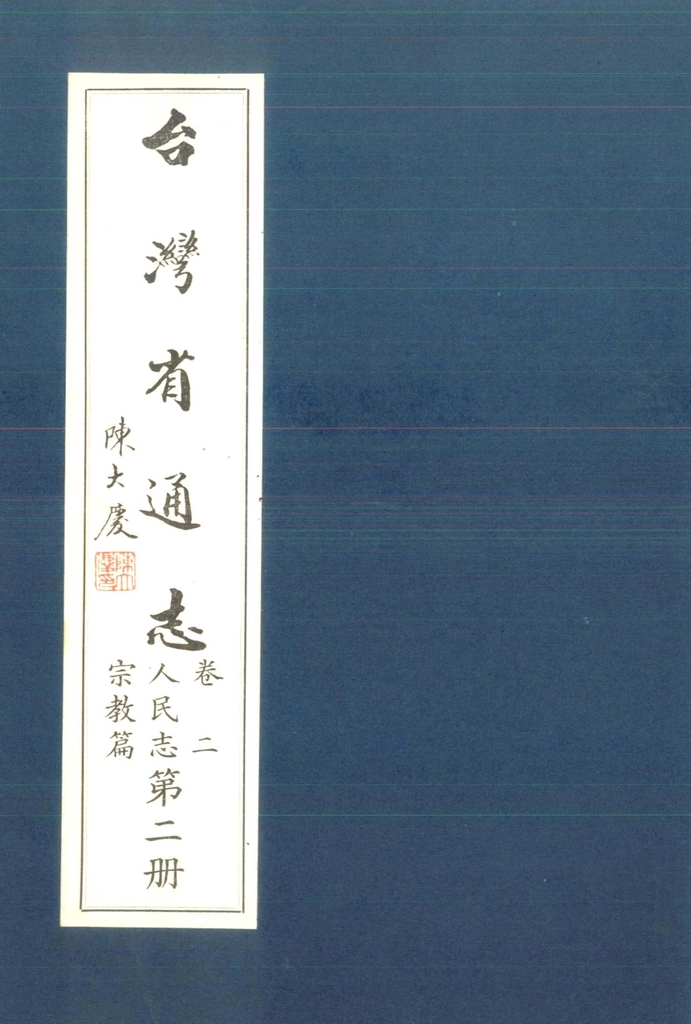 台灣省通志
卷二
人民志
宗教篇
第二册
陳大慶